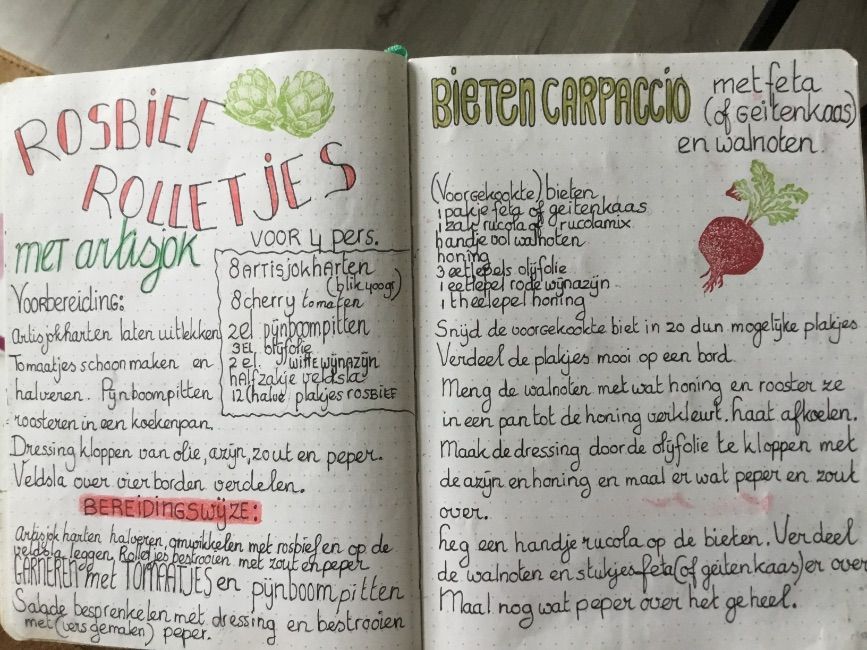 ROSBIEF
ROLLETJES
met artisjok
VOOR 4 pers.
8 ARTISJOKHARTEN
(blik 400gr)
8 cherry tomaten
2 el pijnboompitten
3 EL olijfolie
2 el. witte wijnazijn
half zakje veldsla
12 (halve) plakjes ROSBIEF
Voorbereiding:
Artisjokharten laten uitlekken
Tomaatjes schoonmaken en
halveren. Pijnboompitten
roosteren in een koekenpan.
Dressing kloppen van olie, azijn, zout en peper.
Veldsla over vier borden verdelen.
BEREIDINGSWIJZE:
Artisjokharten halveren, omwikkelen met rosbief en op de
veldsla leggen. Rolletjes bestrooien met zout en peper
GARNEREN met TOMAATJES en pijnboompitten
Salade besprenkelen met dressing en bestrooien
met (vers gemalen) peper.
BIETEN CARPACCIO
met feta
(of geitenkaas)
en walnoten.
(Voorgekookte) bieten
1 pakje feta of geitenkaas
1 zak rucola of rucolamix
handje vol walnoten
honing
3 eetlepels olijfolie
1 eetlepel rode wijnazijn
1 theelepel honing
Snijd de voorgekookte biet in zo dun mogelijke plakjes
Verdeel de plakjes mooi op een bord.
Meng de walnoten met wat honing en rooster ze
in een pan tot de honing verkleurt. Laat afkoelen.
Maak de dressing door de olijfolie te kloppen met
de azijn en honing en maal er wat peper en zout
over.
Leg een handje rucola op de bieten. Verdeel
de walnoten en stukjes feta (of geitenkaas) er over
Maal nog wat peper over het geheel.